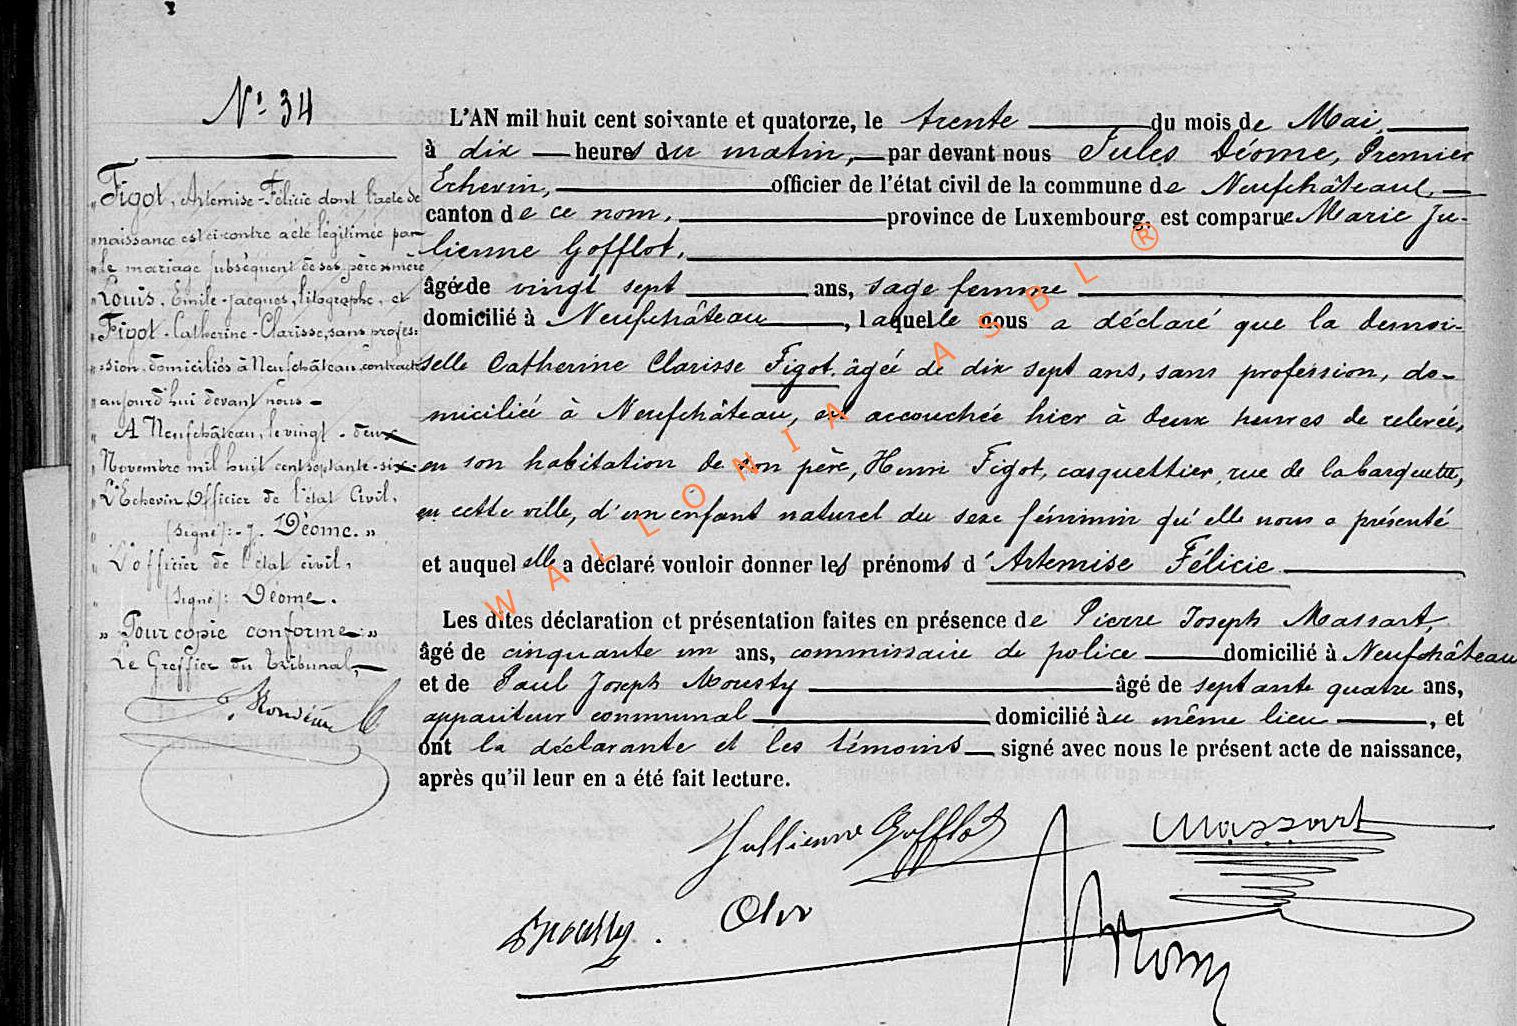 N° 34
„ Figot, Artemise-Félicie dont l'acte de
„ naissance est ci-contre a été légitimée par
„ le mariage subséquent de ses père & mère
„ Louis, Emile-Jacques, litographe, et
„ Figot-Catherine-Clarisse, sans profes-
„ sion, domiciliés à Neufchâteau, contracté
„ aujourd'hui devant nous —
„ A Neufchâteau, le vingt-deux
„ Novembre mil huit cent septante-six.
„ L'Echevin, Officier de l'état Civil,
„ (signé): J. Déome. „
„ L'officier de l'état civil,
„ (signé): Déome.
„ Pour copie conforme „
Le Greffier du Tribunal,
L'AN mil huit cent soixante et quatorze, le trente du mois de Mai,
à dix heures du matin, par devant nous Jules Déome, Premier
Echevin, officier de l'état civil de la commune de Neufchâteau,
canton de ce nom, province de Luxembourg, est comparue Marie Ju-
lienne Gofflot,
âgée de vingt sept ans, sage femme
domicilié à Neufchâteau, laquelle nous a déclaré que la demoi-
selle Catherine Clarisse Figot, âgée de dix sept ans, sans profession, do-
miciliée à Neufchâteau, est accouchée hier à deux heures de relevée,
en son habitation de son père, Henri Figot, casquettier, rue de la barquette,
en cette ville, d'un enfant naturel du sexe féminin qu'elle nous a présenté
et auquel elle a déclaré vouloir donner les prénoms d'Artemise Félicie
Les dites déclaration et présentation faites en présence de Pierre Joseph Massart,
âgé de cinquante un ans, commissaire de police domicilié à Neufchâteau
et de Paul Joseph Mousty âgé de septante quatre ans,
appariteur communal domicilié au même lieu, et
ont la déclarante et les témoins signé avec nous le présent acte de naissance,
après qu'il leur en a été fait lecture.
Jullienne Gofflot
Massart
WALLONIA ASBL ®